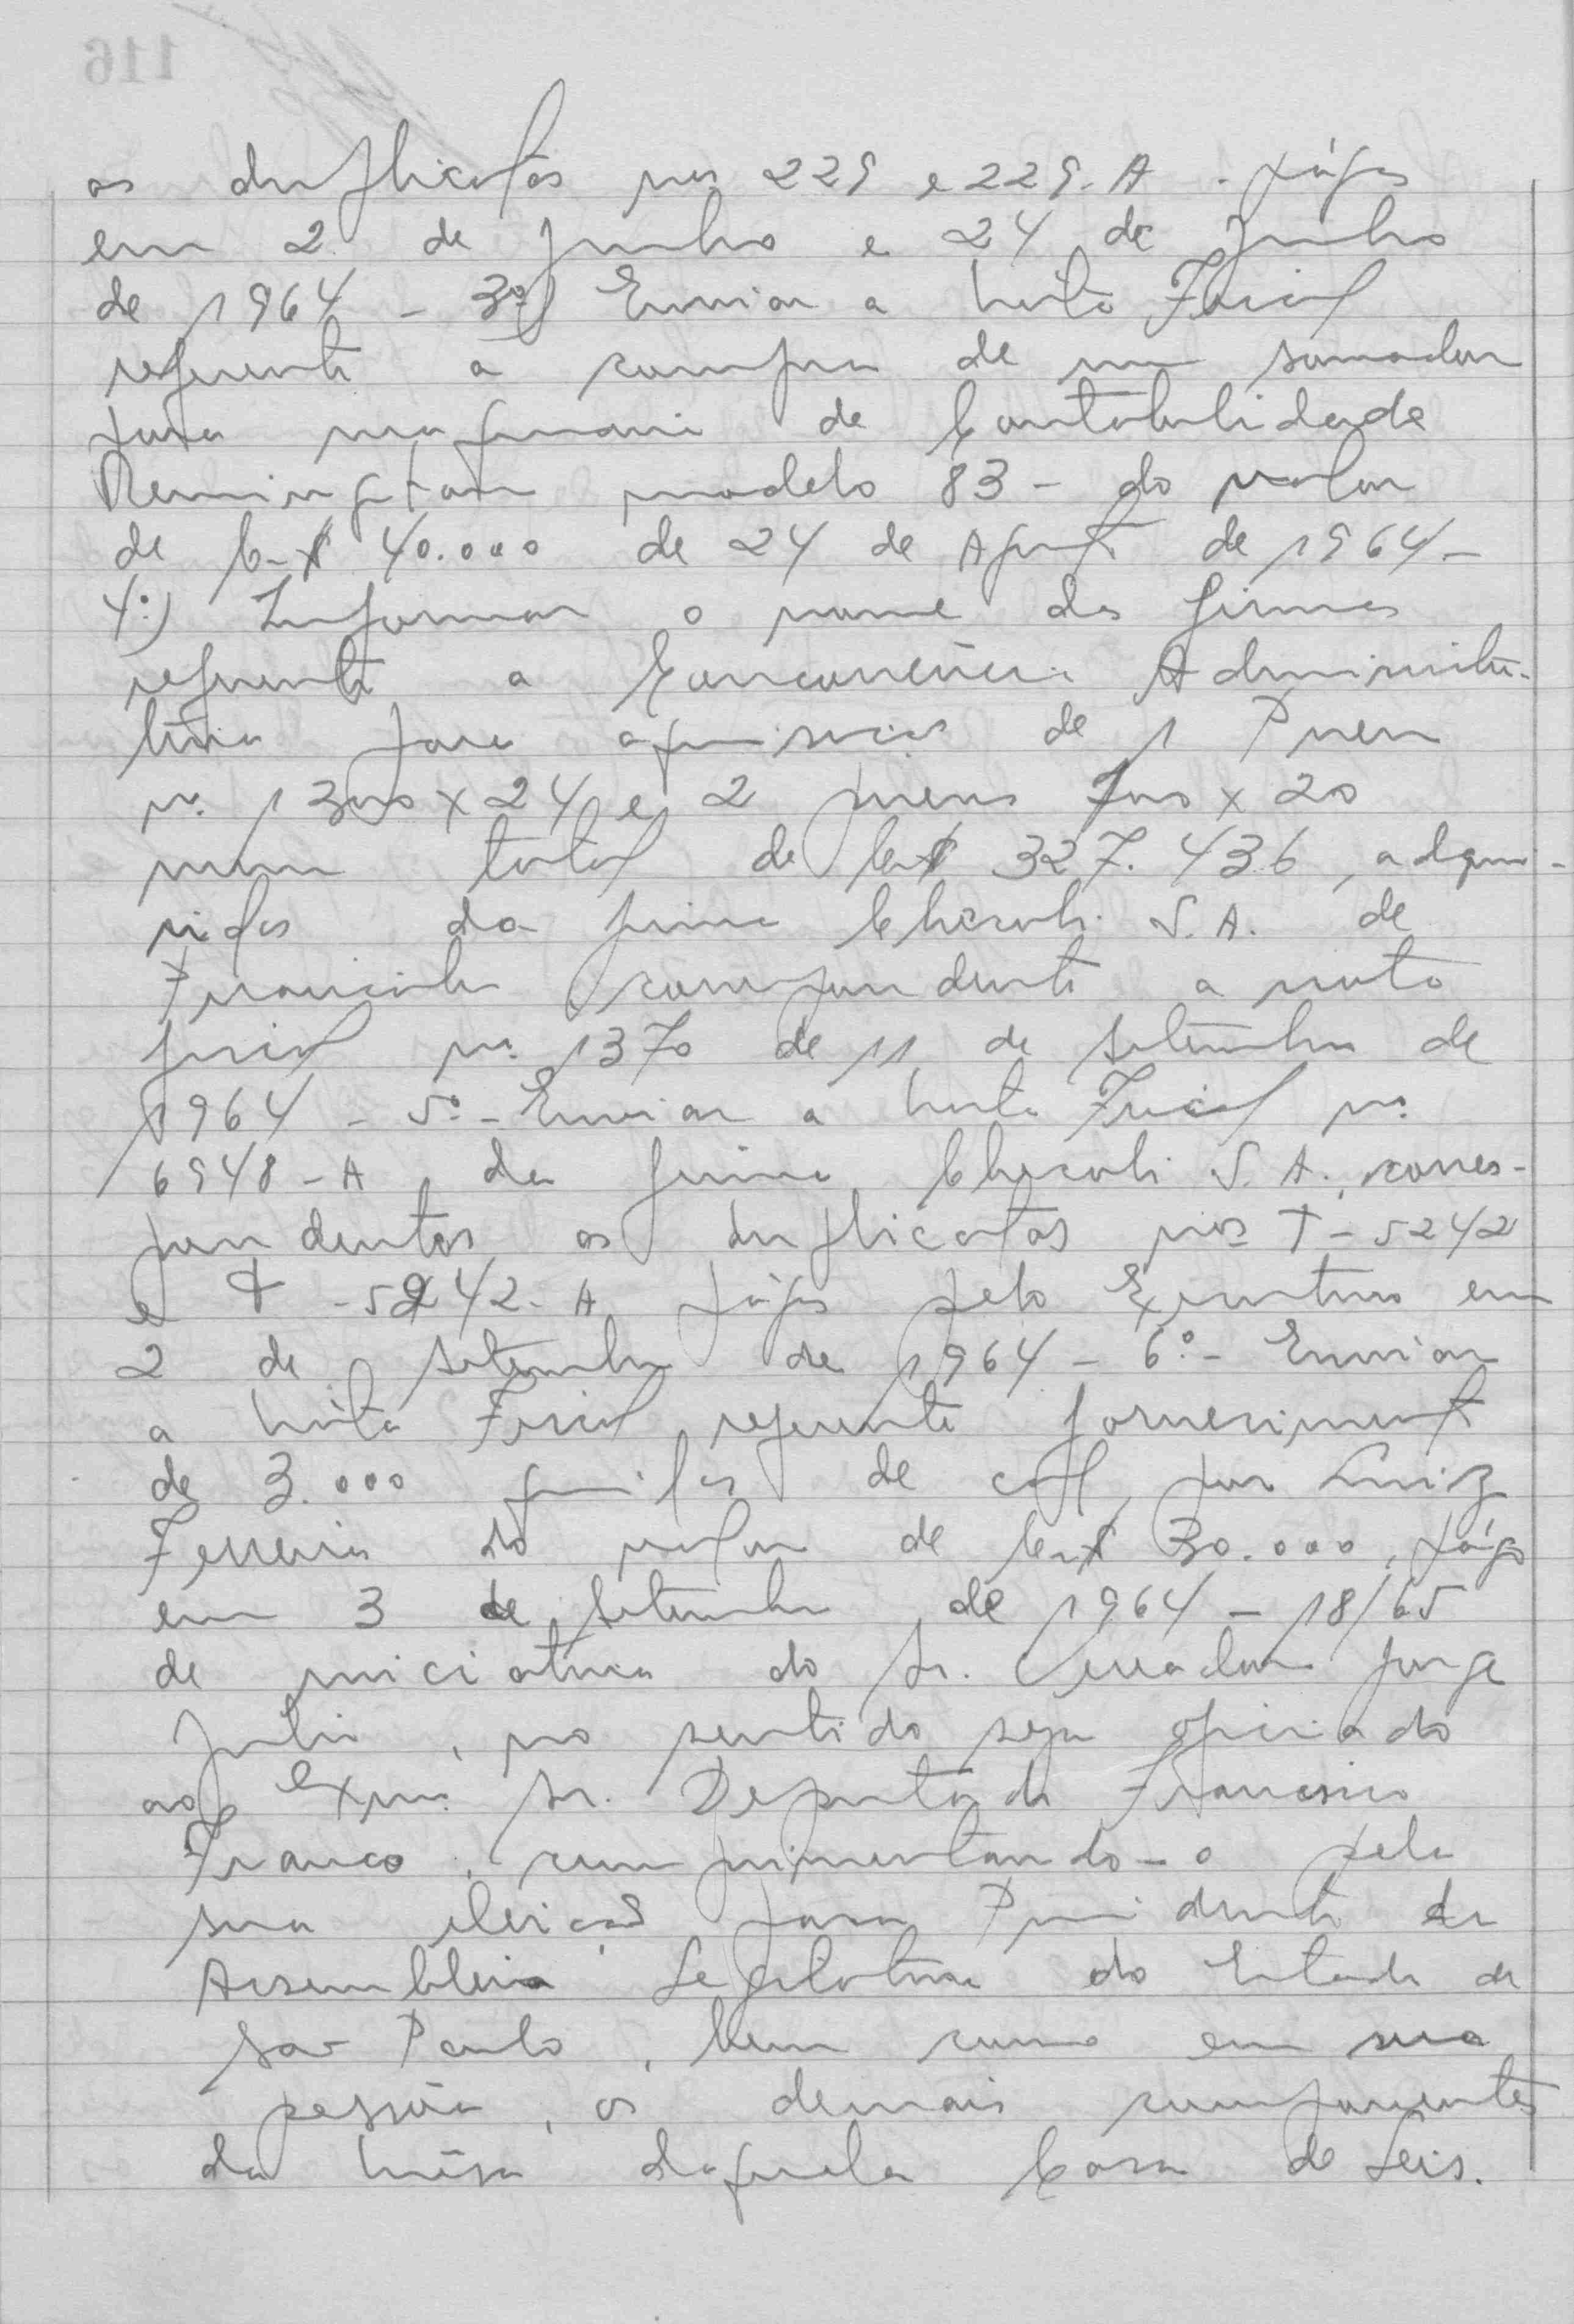 as duplicatas nos 229 e 229-A - págas
em 2 de Junho e 24 de Junho
de 1964 - 3º) Enviar a Nota Fiscal
referente a compra de um somador
para maquina de Contabilidade
Remington modelo 83 - do valor
de Cr$ 40.000 de 24 de Agosto de 1964 -
4º) Informar o nome das firmas
referente a Concorrência Administra-
tiva para aquisicão de 1 Pneu
nº 1300 x 24 e 2 pneus 700 x 20
num total de Cr$ 327.436, adqui-
ridos da firma Chicoli S.A. de
correspondente a nota
fiscal nº 1370 de 11 de setembro de
1964 - 5º - Enviar a Nota Fiscal nº
6948-A da firma Chicoli S.A., corres-
pondentes as duplicatas nos T-5242
e T-5242-A págas pelo Executivo em
2 de setembro de 1964 - 6º - Enviar
a Nota Fiscal referente fornecimento
de 3.000 quilos de cal por Luiz
Ferreira do valor de Cr$ 30.000, págo
em 3 de setembro de 1964 - 18/65
de iniciativa do Sr. Vereador Jorge
Julio, no sentido seja oficiado
ao Exmo. Sr. Deputado Francisco
Franco, cumprimentando-o pela
sua eleicão para Presidente da
Assembleia Legislativa do Estado de
São Paulo, bem como em sua
pessôa, os demais componentes
da Mêsa daquela Casa de Leis.
116